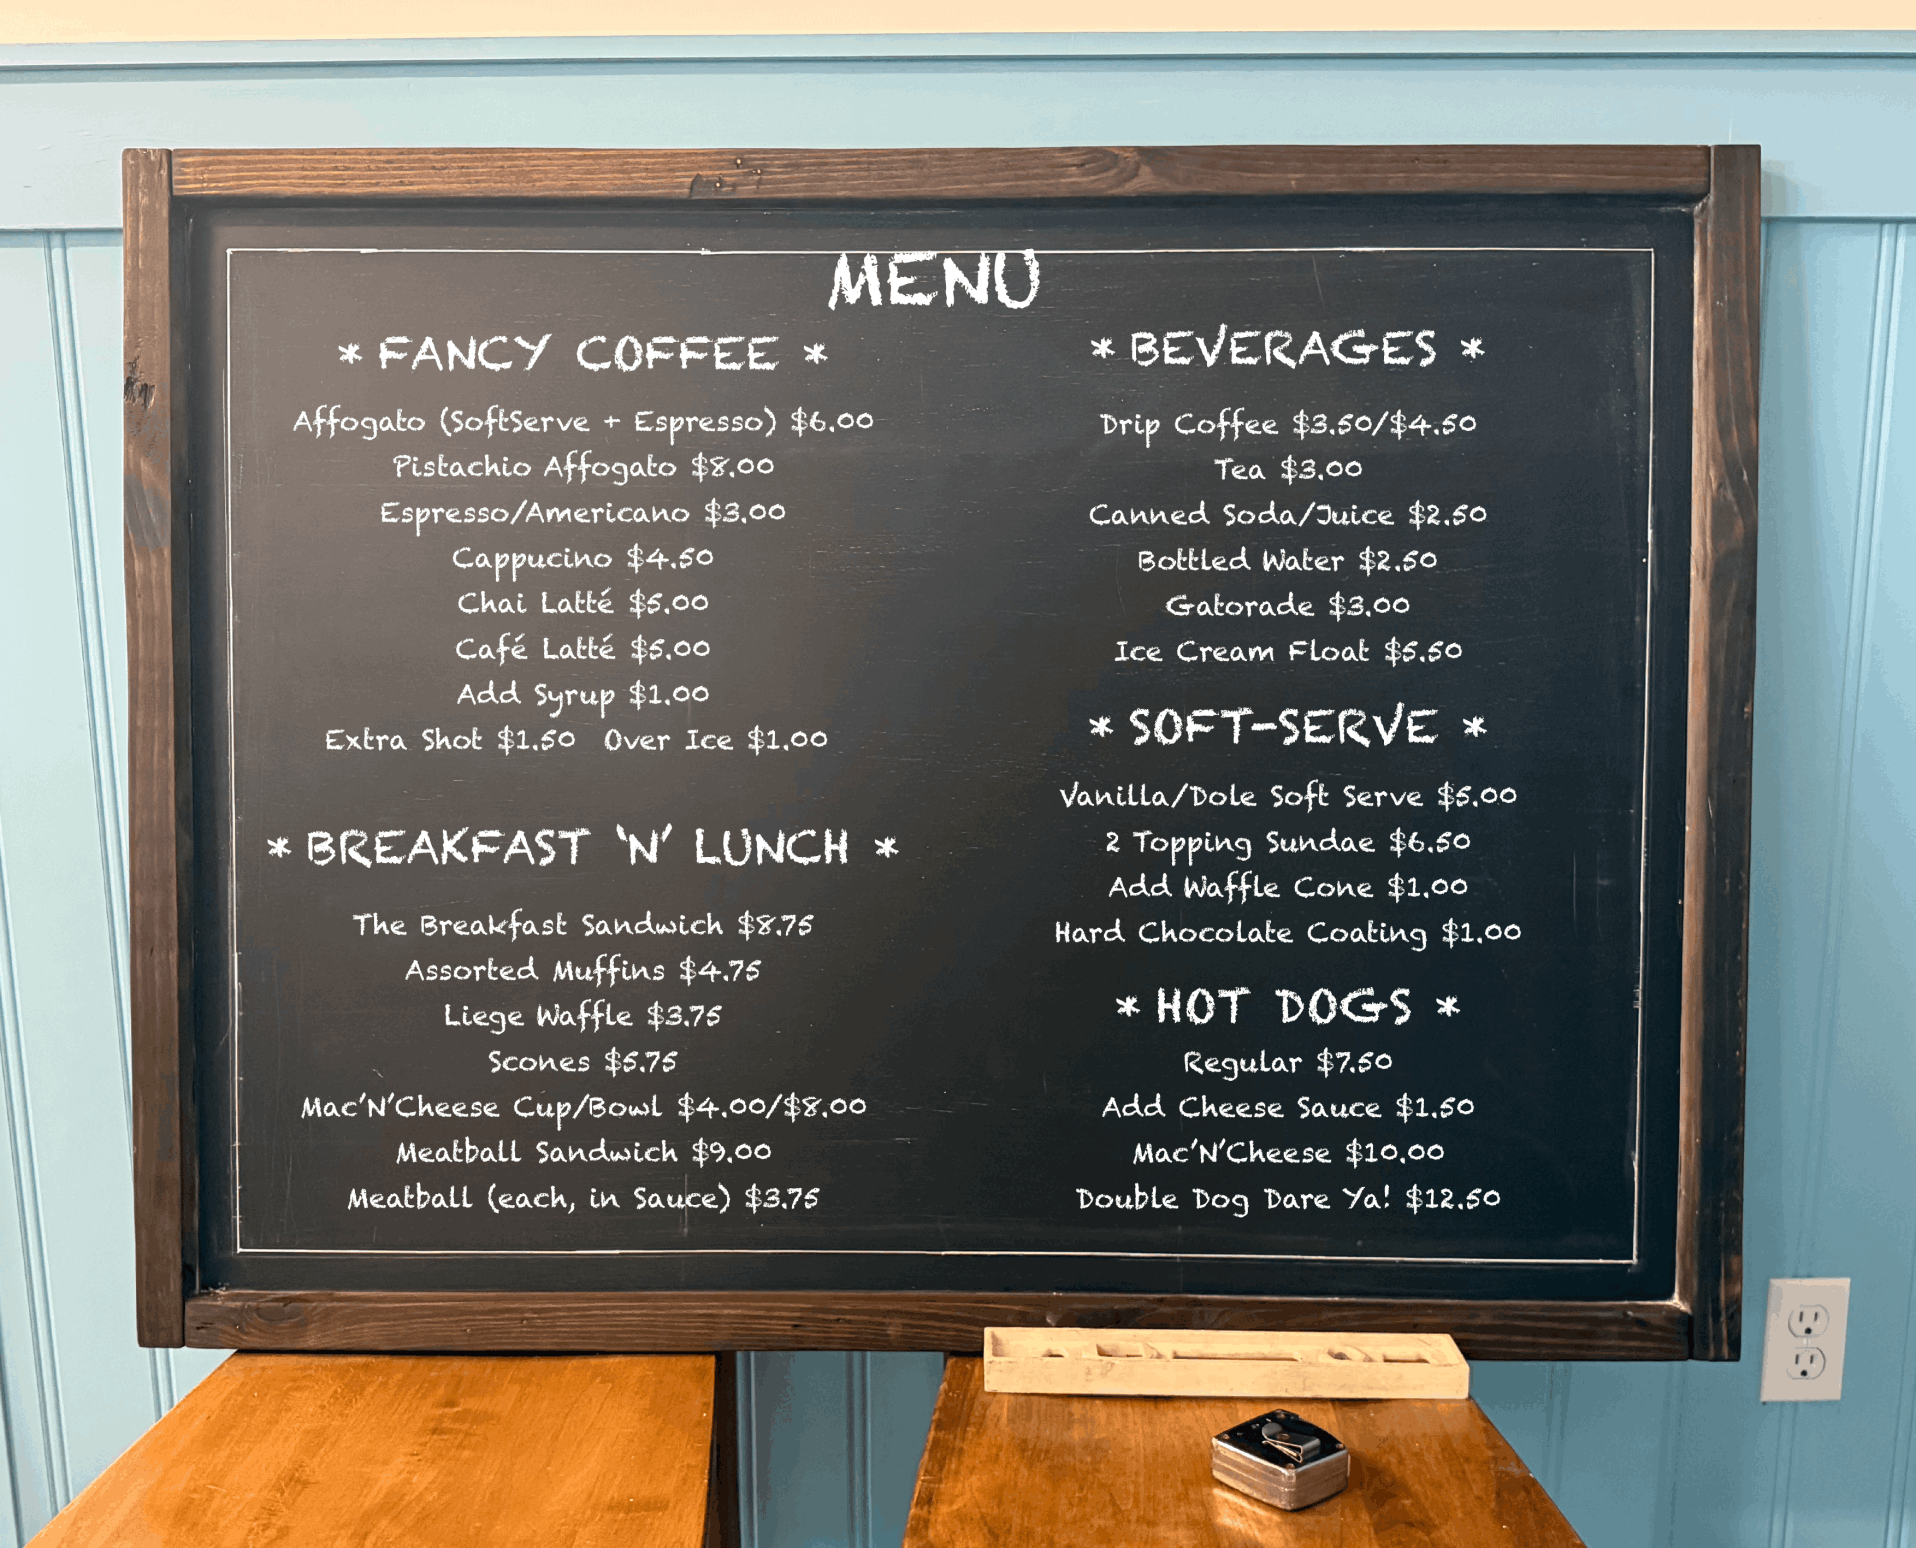 MENU
* FANCY COFFEE *
Affogato (SoftServe + Espresso) $6.00
Pistachio Affogato $8.00
Espresso/Americano $3.00
Cappucino $4.50
Chai Latté $5.00
Café Latté $5.00
Add Syrup $1.00
Extra Shot $1.50 Over Ice $1.00
* BREAKFAST 'N' LUNCH *
The Breakfast Sandwich $8.75
Assorted Muffins $4.75
Liege Waffle $3.75
Scones $5.75
Mac'N'Cheese Cup/Bowl $4.00/$8.00
Meatball Sandwich $9.00
Meatball (each, in Sauce) $3.75
* BEVERAGES *
Drip Coffee $3.50/$4.50
Tea $3.00
Canned Soda/Juice $2.50
Bottled Water $2.50
Gatorade $3.00
Ice Cream Float $5.50
* SOFT-SERVE *
Vanilla/Dole Soft Serve $5.00
2 Topping Sundae $6.50
Add Waffle Cone $1.00
Hard Chocolate Coating $1.00
* HOT DOGS *
Regular $7.50
Add Cheese Sauce $1.50
Mac'N'Cheese $10.00
Double Dog Dare Ya! $12.50